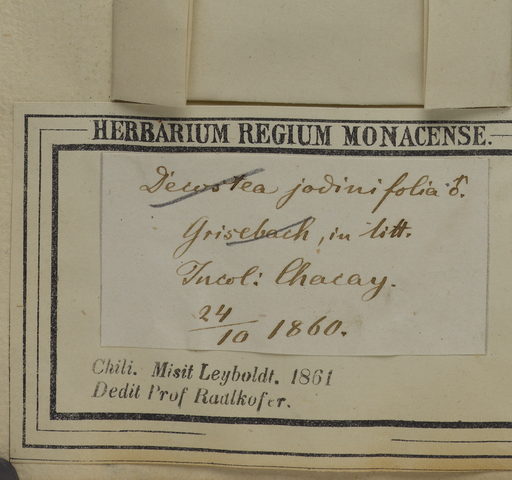 HERBARIUM REGIUM MONACENSE.
Decostea jodinifolia ♂.
Grisebach, in litt.
Incol: Chacay.
24/10 1860.
Chili. Misit Leyboldt. 1861
Dedit Prof Radlkofer.